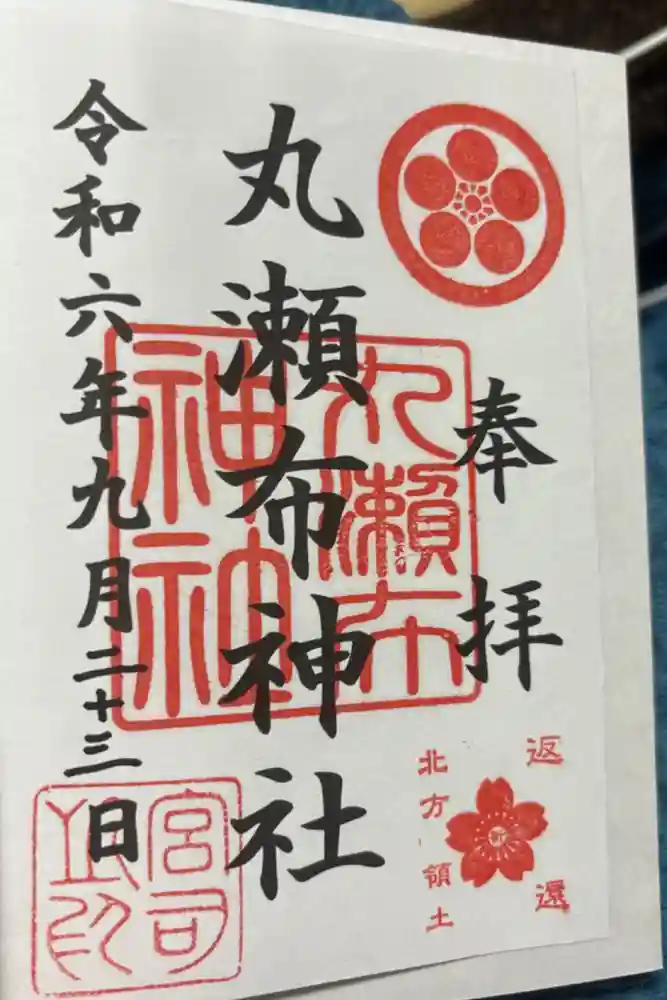 奉拝
丸瀬布神社
令和六年九月二十三日
丸瀬布
神社
返還
北方領土
宮司
之印